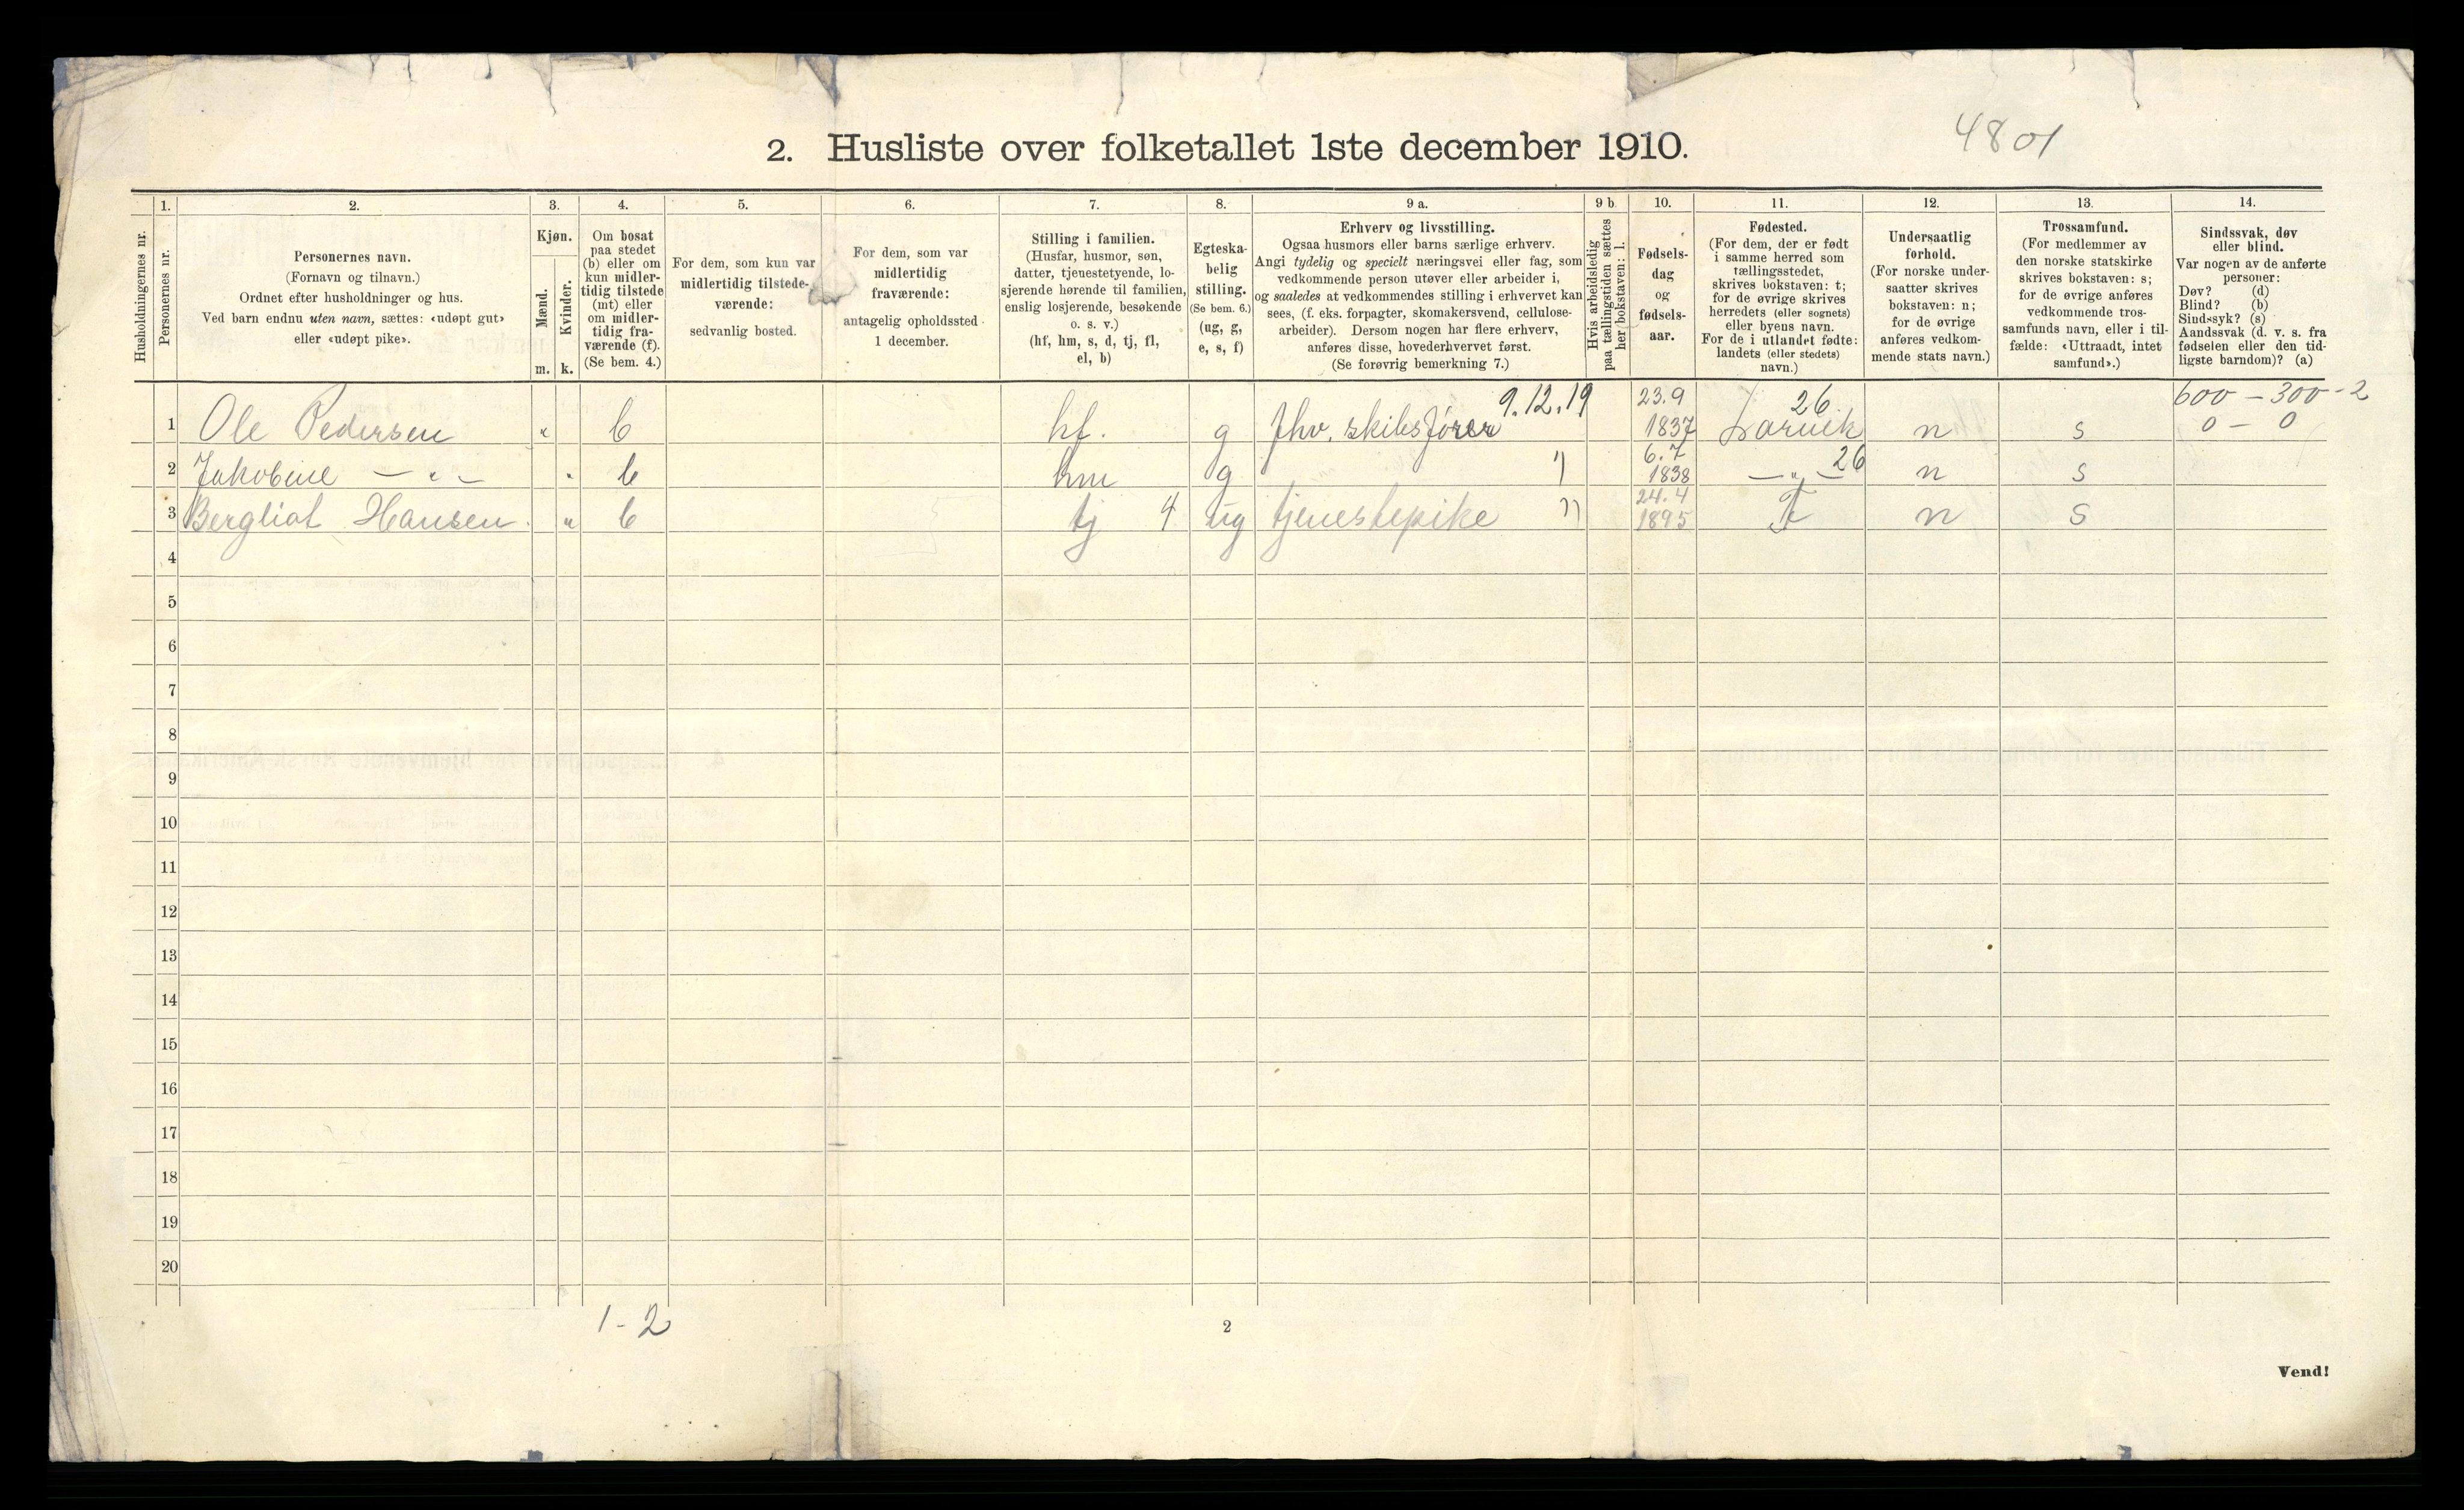 4801
2. Husliste over folketallet 1ste december 1910.
Husholdningernes nr.
1.
Personernes nr.
2.
Personernes navn.
(Fornavn og tilnavn.)
Ordnet efter husholdninger og hus.
Ved barn endnu uten navn, sættes: «udøpt gut»
eller «udøpt pike».
3.
Kjøn.
Mænd.
Kvinder.
m. k.
4.
Om bosat
paa stedet
(b) eller om
kun midler-
tidig tilstede
(mt) eller
om midler-
tidig fra-
værende (f).
(Se bem. 4.)
5.
For dem, som kun var
midlertidig tilstede-
værende:
sedvanlig bosted.
6.
For dem, som var
midlertidig
fraværende:
antagelig opholdssted
1 december.
7.
Stilling i familien.
(Husfar, husmor, søn,
datter, tjenestetyende, lo-
sjerende hørende til familien,
enslig losjerende, besøkende
o. s. v.)
(hf, hm, s, d, tj, fl,
el, b)
8.
Egteska-
belig
stilling.
(Se bem. 6.)
(ug, g,
e, s, f)
9 a.
Erhverv og livsstilling.
Ogsaa husmors eller barns særlige erhverv.
Angi tydelig og specielt næringsvei eller fag, som
vedkommende person utøver eller arbeider i,
og saaledes at vedkommendes stilling i erhvervet kan
sees, (f. eks. forpagter, skomakersvend, cellulose-
arbeider). Dersom nogen har flere erhverv,
anføres disse, hovederhvervet først.
(Se forøvrig bemerkning 7.)
9 b
Hvis arbeidsledig
paa tællingstiden sættes
her bokstaven: l.
10.
Fødsels-
dag
og
fødsels-
aar.
11.
Fødested.
(For dem, der er født
i samme herred som
tællingsstedet,
skrives bokstaven: t;
for de øvrige skrives
herredets (eller sognets)
eller byens navn.
For de i utlandet fødte:
landets (eller stedets)
navn.)
12.
Undersaatlig
forhold.
(For norske under-
saatter skrives
bokstaven: n;
for de øvrige
anføres vedkom-
mende stats navn.)
13.
Trossamfund.
(For medlemmer av
den norske statskirke
skrives bokstaven: s;
for de øvrige anføres
vedkommende tros-
samfunds navn, eller i til-
fælde: «Uttraadt, intet
samfund».)
14.
Sindssvak, døv
eller blind.
Var nogen av de anførte
personer:
Døv? (d)
Blind? (b)
Sindssyk? (s)
Aandssvak (d. v. s. fra
fødselen eller den tid-
ligste barndom)? (a)
9.12.19 23.9 26 600 - 300 - 2
1 Ole Pedersen " b hf. g fhv. skibsfører 1837 Larvik n s 0 - 0
6.7 26
2 Jakobine — " — " b hm g ") 1838 — " — n s
24.4
3 Bergliot Hansen. " b tj 4 ug tjenestepike ") 1895 T n s
4
5
6
7
8
9
10
11
12
13
14
15
16
17
18
19
20
1 - 2
2
Vend!